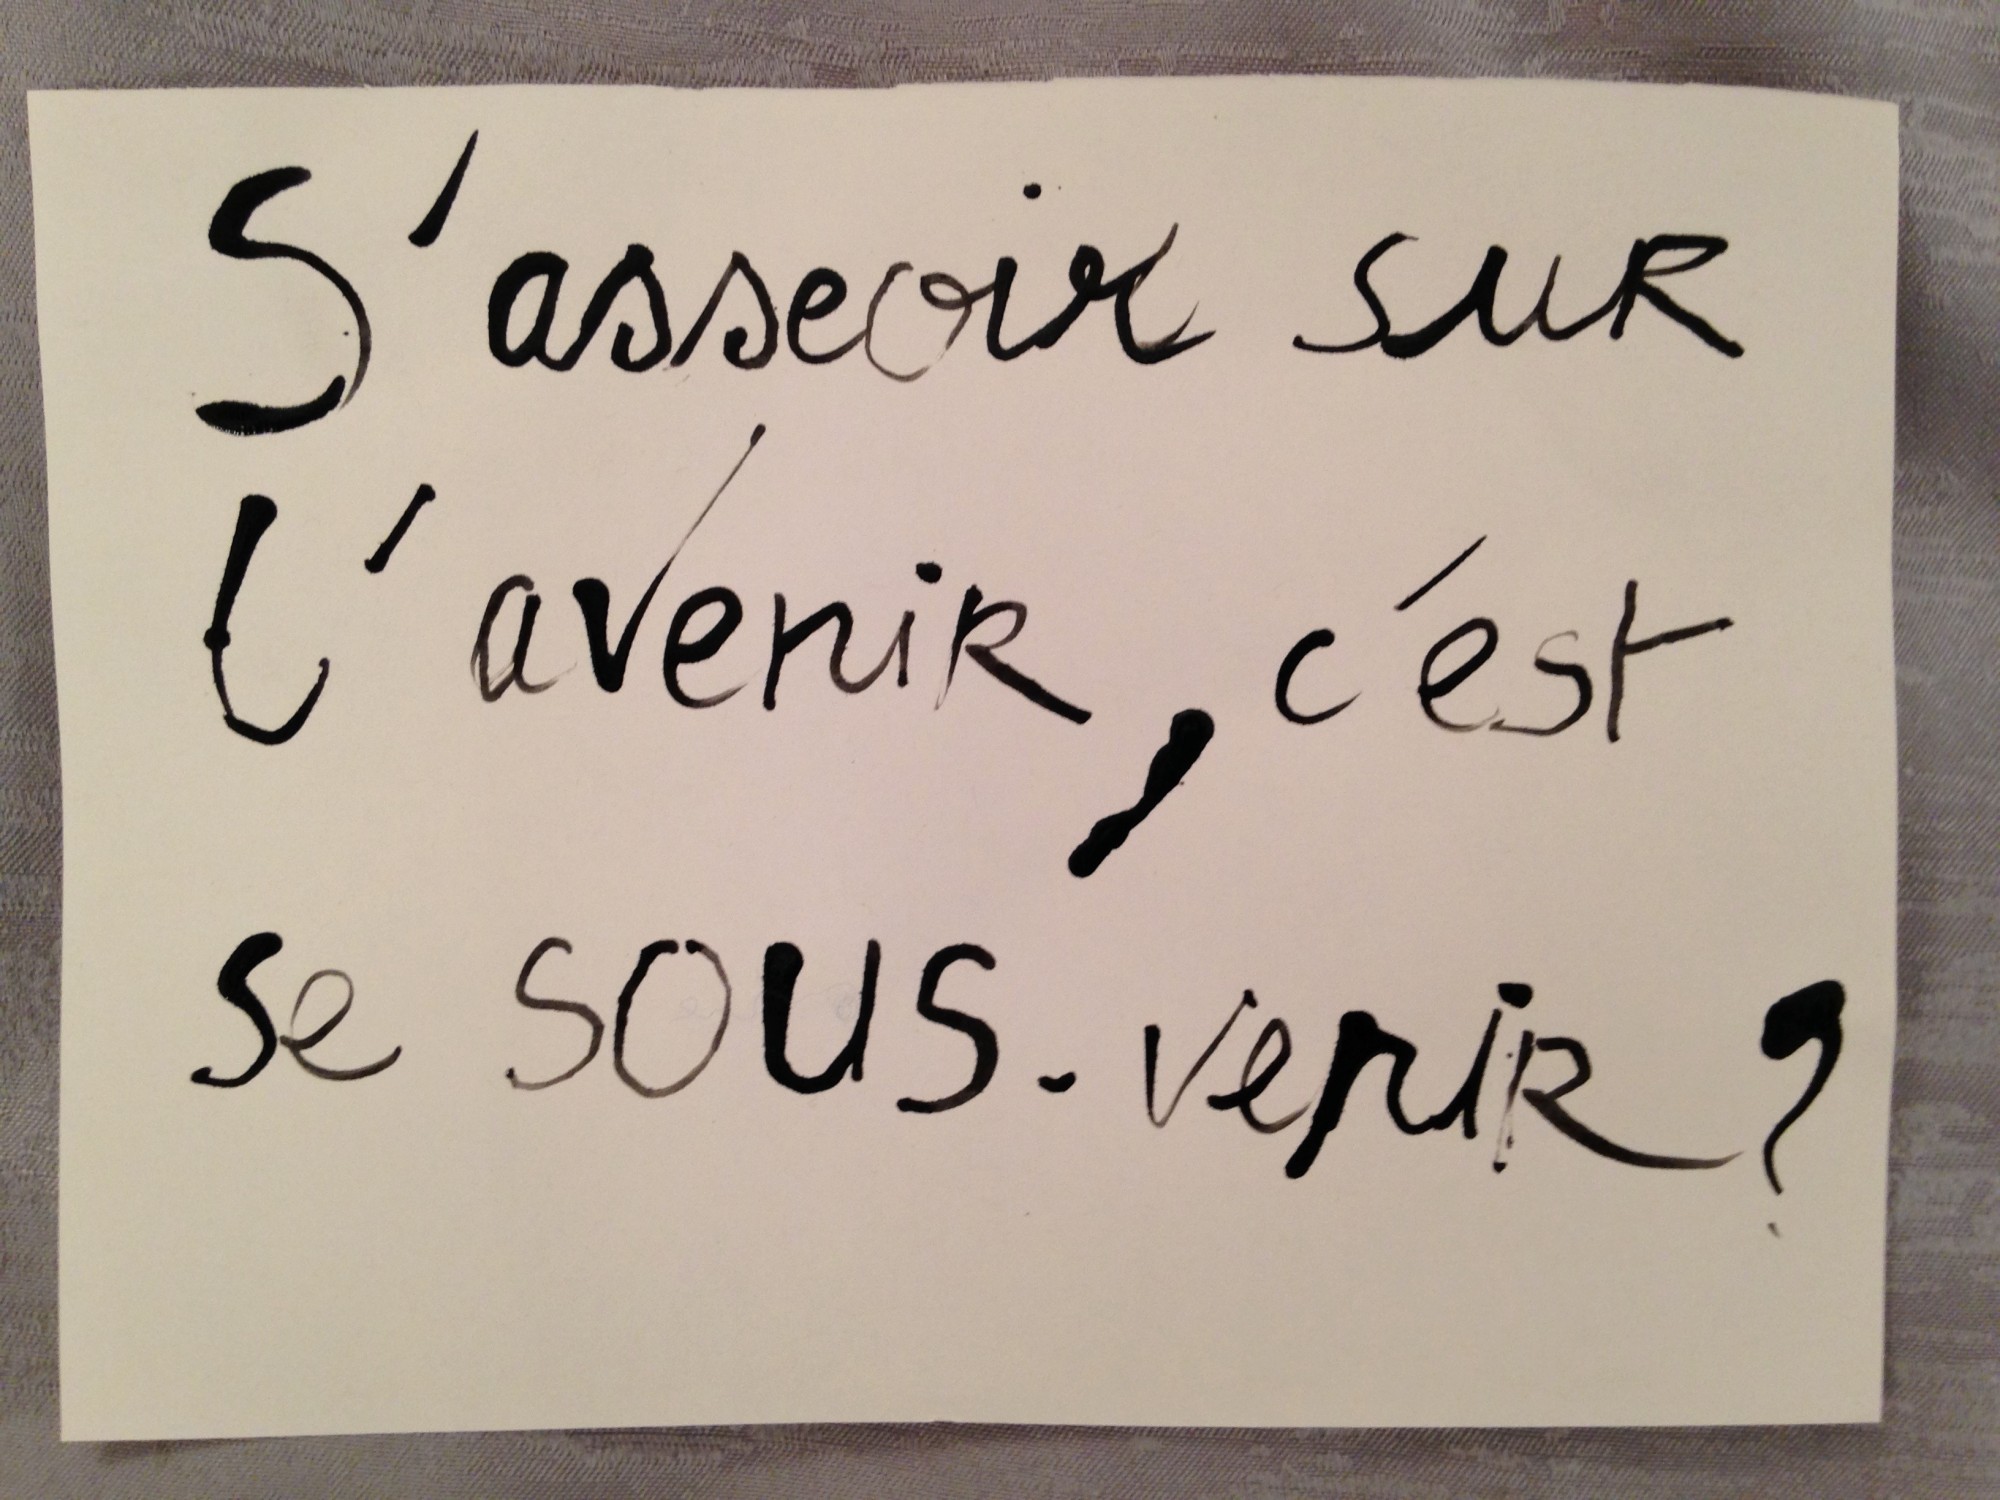 S'asseoir sur
l'avenir, c'est
se sous-venir ?